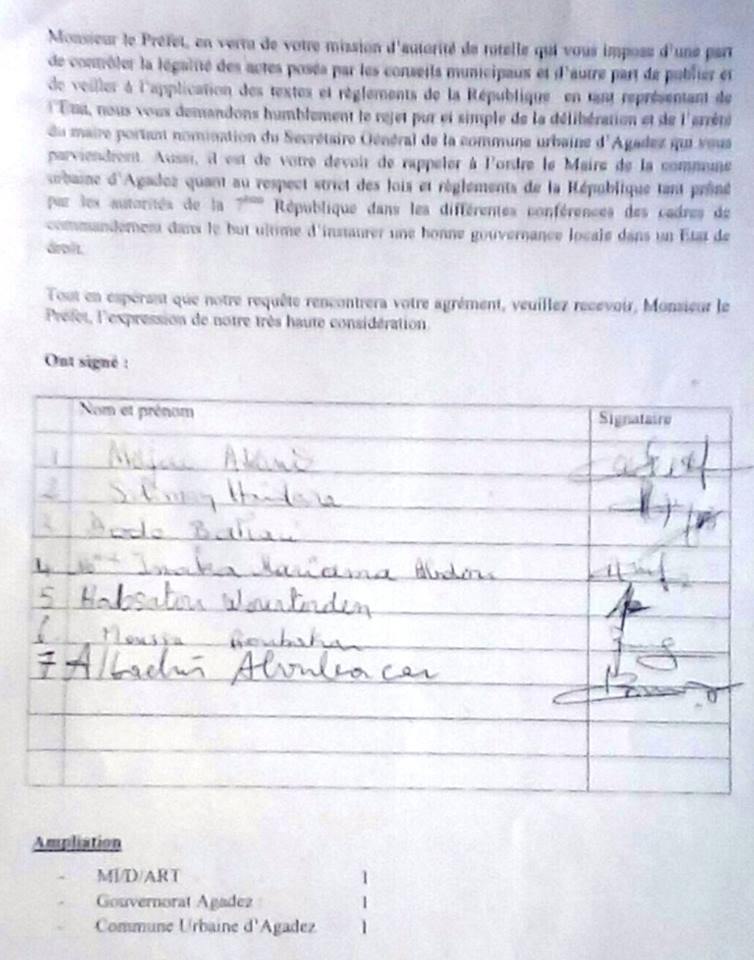 Monsieur le Préfet, en vertu de votre mission d'autorité de tutelle qui vous impose d'une part
de contrôler la légalité des actes posés par les conseils municipaux et d'autre part de publier et
de veiller à l'application des textes et règlements de la République en tant représentant de
l'Etat, nous vous demandons humblement le rejet pur et simple de la délibération et de l'arrêté
du maire portant nomination du Secrétaire Général de la commune urbaine d'Agadez qui vous
parviendront. Aussi, il est de votre devoir de rappeler à l'ordre le Maire de la commune
urbaine d'Agadez quant au respect strict des lois et règlements de la République tant prôné
par les autorités de la 7ème République dans les différentes conférences des cadres de
commandement dans le but ultime d'instaurer une bonne gouvernance locale dans un Etat de
droit.
Tout en espérant que notre requête rencontrera votre agrément, veuillez recevoir, Monsieur le
Préfet, l'expression de notre très haute considération.
Ont signé :
Nom et prénom Signataire
1
2
3 Dodo
4 Mariama Abdou
5 Habsatou
6 Moussa
7
Ampliation
- MI/D/ART 1
- Gouvernorat Agadez 1
- Commune Urbaine d'Agadez 1